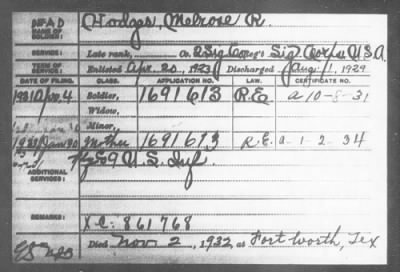 DEAD
NAME OF SOLDIER: Hodges, Melrose R.
SERVICE: Late rank, Co. Sig Corps U.S.A.
TERM OF SERVICE: Enlisted Apr. 20, 1923 Discharged 1, 1929
DATE OF FILING. CLASS. APPLICATION NO. LAW. CERTIFICATE NO.
4 Soldier, 1691613 R.E. a 10-8-31
Widow,
Minor,
Mother 1691613 R.E. a-1-2-34
ADDITIONAL SERVICES: U.S. Inf.
REMARKS: X C: 861768
Died Nov 2, 1932, at Fort Worth, Tex